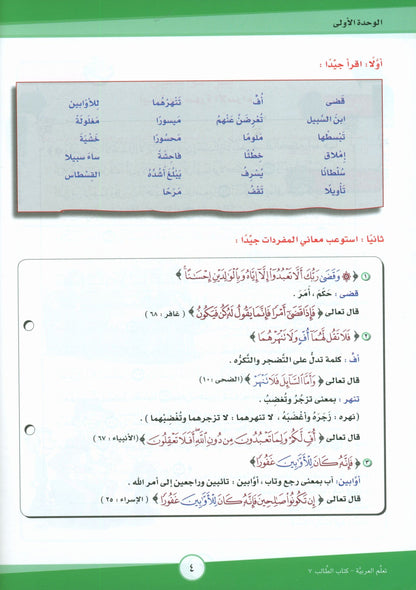 الوحدة الأولى
أوّلًا : اقرأ جيّدًا :
قضى أُفّ تَنْهَرْهُما للأوابين
ابنَ السَّبيل تُعْرِضَنَّ عَنْهُمُ مَيسورًا مَغلولَةً
تَبْسُطْها مَلومًا مَحْسورًا خَشْيَةَ
إمْلاقٍ خِطْئًا فاحِشَةً ساءَ سبيلا
سُلْطانًا يُسْرِفْ يَبْلُغَ أشُدَّهُ القِسْطاس
تَأويلًا تَقْفُ مَرَحًا
ثانيًا : استوعب معاني المفردات جيّدًا :
١ ﴿ ۞ وَقَضَىٰ رَبُّكَ أَلَّا تَعْبُدُوٓا۟ إِلَّآ إِيَّاهُ وَبِٱلْوَٰلِدَيْنِ إِحْسَٰنًا ﴾
قضى : حَكَمَ ، أَمَرَ .
قال تعالى ﴿ فَإِذَا قَضَىٰٓ أَمْرًا فَإِنَّمَا يَقُولُ لَهُۥ كُن فَيَكُونُ ﴾ ( غافر : ٦٨ )
٢ ﴿ فَلَا تَقُل لَّهُمَآ أُفٍّ وَلَا تَنْهَرْهُمَا ﴾
أفّ : كلمة تدلُّ على التَّضجر والتَّكرُّه .
قال تعالى ﴿ وَأَمَّا ٱلسَّآئِلَ فَلَا تَنْهَرْ ﴾ (الضحى : ١٠)
تنهر : بمعنى تزجُرُ وتُغضِبُ .
( نهره : زَجَرَهُ وأَغْضَبَهُ ، لا تنهرهما : لا تزجرهما وتُغضِبْهما ) .
قال تعالى ﴿ أُفٍّ لَّكُمْ وَلِمَا تَعْبُدُونَ مِن دُونِ ٱللَّهِ أَفَلَا تَعْقِلُونَ ﴾ (الأنبياء : ٦٧)
٣ ﴿ فَإِنَّهُۥ كَانَ لِلْأَوَّٰبِينَ غَفُورًا ﴾
أوّابين: آب بمعنى رجع وتاب ، أوّابين : تائبين وراجعين إلى أمر الله .
قال تعالى ﴿ إِن تَكُونُوا۟ صَٰلِحِينَ فَإِنَّهُۥ كَانَ لِلْأَوَّٰبِينَ غَفُورًا ﴾ (الإسراء : ٢٥)
٤
تعلّم العربيّة – كتاب الطّالب ٧